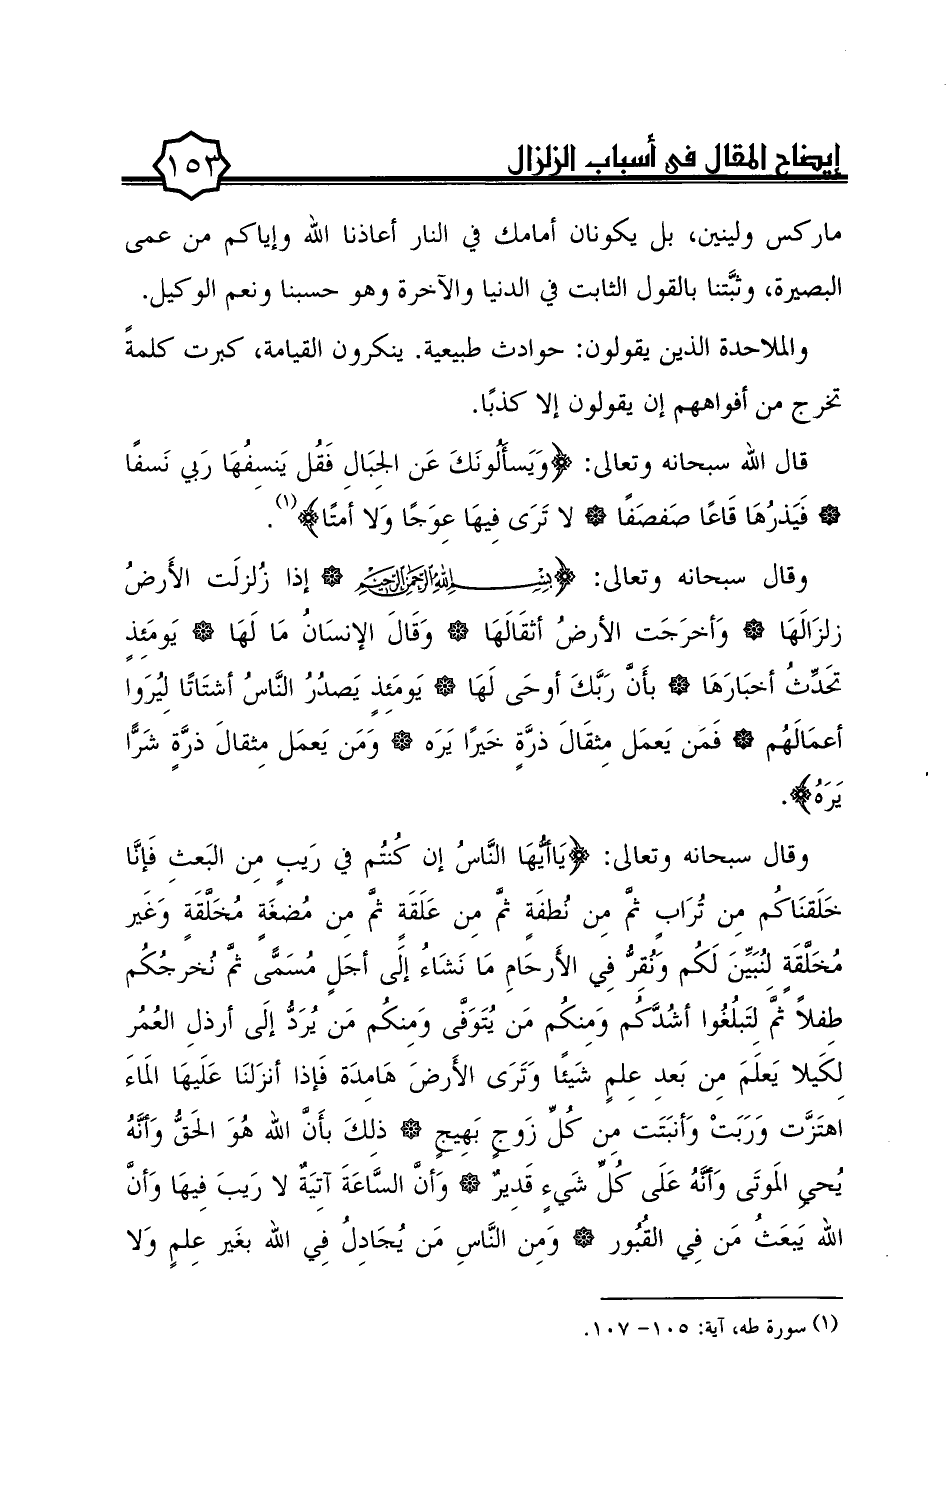 إيضاح المقال في أسباب الزلزال
١٥٣
ماركس ولينين، بل يكونان أمامك في النار أعاذنا الله وإياكم من عمى
البصيرة، وثبَّتنا بالقول الثابت في الدنيا والآخرة وهو حسبنا ونعم الوكيل.
والملاحدة الذين يقولون: حوادث طبيعية. ينكرون القيامة، كبرت كلمةً
تخرج من أفواههم إن يقولون إلا كذبًا.
قال الله سبحانه وتعالى: ﴿وَيَسأَلُونَكَ عَنِ الجِبَالِ فَقُل يَنسِفُهَا رَبِي نَسفًا
۞ فَيَذرُهَا قَاعًا صَفصَفًا ۞ لا تَرَى فِيهَا عِوَجًا وَلا أمتًا﴾(١).
وقال سبحانه وتعالى: ﴿بِسْمِ اللهِ الرَّحْمَنِ الرَّحِيمِ ۞ إذا زُلزِلَت الأَرضُ
زِلزَالَهَا ۞ وَأخرَجَت الأرضُ أثقَالَهَا ۞ وَقَالَ الإنسَانُ مَا لَهَا ۞ يَومَئِذٍ
تحَدِّثُ أخبَارَهَا ۞ بأَنَّ رَبَّكَ أوحَى لَهَا ۞ يَومَئِذٍ يَصدُرُ النَّاسُ أشتَاتًا لِيُرَوا
أعمَالَهُم ۞ فَمَن يَعمَل مِثقَالَ ذرَّةٍ خَيرًا يَرَه ۞ وَمَن يَعمَل مِثقالَ ذرَّةٍ شَرًّا
يَرَهُ﴾.
وقال سبحانه وتعالى: ﴿يَاأيُّهَا النَّاسُ إن كُنتُم في رَيبٍ مِن البَعثِ فَإنَّا
خَلَقنَاكُم مِن تُرَابٍ ثمَّ مِن نُطفَةٍ ثمَّ مِن عَلَقَةٍ ثمَّ مِن مُضغَةٍ مُخَلَّقَةٍ وَغَيرِ
مُخَلَّقَةٍ لِنُبَيِّنَ لَكُم وَنُقِرُّ فِي الأرحَامِ مَا نَشَاءُ إلَى أجَلٍ مُسَمًّى ثمَّ نُخرِجُكُم
طِفلاً ثمَّ لِتَبلُغُوا أشُدَّكُم وَمِنكُم مَن يُتَوَفَّى وَمِنكُم مَن يُرَدُّ إلَى أرذلِ العُمُرِ
لِكَيلا يَعلَمَ مِن بَعدِ عِلمٍ شَيئًا وَتَرَى الأرضَ هَامِدَة فَإذا أنزَلنَا عَلَيهَا الماءَ
اهتَزَّت وَرَبَتْ وَأنبَتَت مِن كُلِّ زَوجٍ بَهِيجٍ ۞ ذلِكَ بأَنَّ الله هُوَ الحَقُّ وَأنَّهُ
يُحيِ الموتَى وَأنَّهُ عَلَى كُلِّ شَيءٍ قَدِيرٌ ۞ وَأنَّ السَّاعَةَ آتِيَةٌ لا رَيبَ فِيهَا وَأنَّ
الله يَبعَثُ مَن فِي القُبُورِ ۞ وَمِن النَّاسِ مَن يُجَادِلُ فِي الله بغَيرِ عِلمٍ وَلا
(١) سورة طه، آية: ١٠٥- ١٠٧.